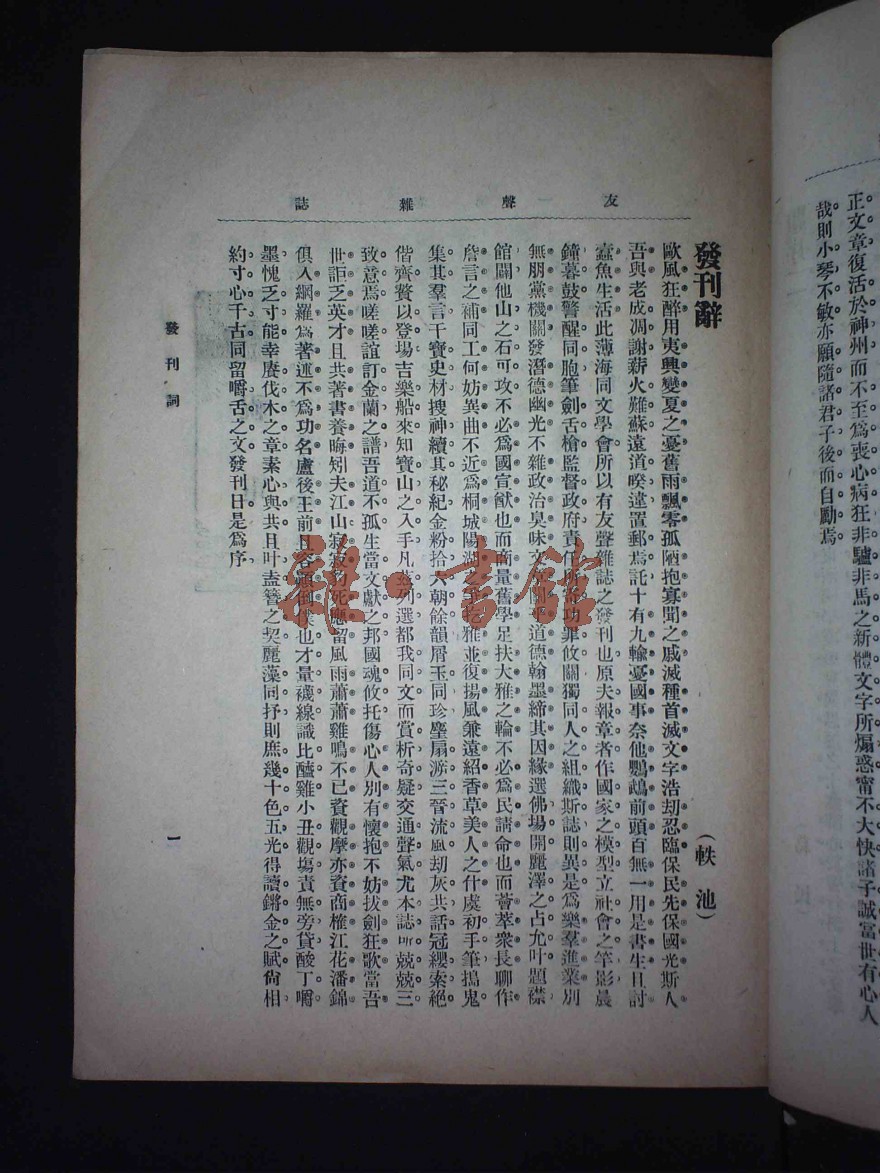 正文章復活於神州而不至爲喪心病狂非驢非馬之新體文字所煽惑甯不大快諸子誠當世有心人
哉則小琴不敏亦願隨諸君子後而自勵焉
友聲雜誌
發刊辭
(軼池)
歐風狂醉用夷興變夏之憂舊雨飄零孤陋抱寡聞之戚滅種首滅文字浩劫忍臨保民先保國光斯人
吾與老成凋謝薪火難蘇遠道暌違置郵焉託十有九輸憂國事奈他鸚鵡前頭百無一用是書生且討
蠹魚生活此薄海同文學會所以有友聲雜誌之發刊也原夫報章著作國家之模型立社會之筆影晨
鐘暮鼓警醒同胞筆劍舌槍監督政府責任所在功罪攸關獨同人之組織斯誌則異是爲樂羣進業別
無朋黨機關發潛德幽光不雜政治臭味文道德翰墨締其因緣選佛場開麗澤之占允叶題襟
館闢他山之石可攻不必爲國宣猷也而商量舊學足扶大雅之輪不必爲民請命也而薈萃衆長聊作
詹言之補同工何妨異曲不近爲桐城陽湖之雅並復揚風兼遠紹香草美人之什處初手筆搗鬼
集其羣言干寶史材搜神續其秘紀金粉拾六朝餘韻屑玉同珍麈扇游三晉流風劫灰共話冠纓索絕
偕齊贅以登場吉樂船來知寶山之入手凡茲列選都我同文而賞析奇疑交通聲氣尤本誌所兢兢三
致意焉嗟嗟誼訂金蘭之譜吾道不孤生當文獻之邦國魂攸托傷心人別有懷抱不妨拔劍狂歌當吾
世詎乏英才且共著書養晦矧夫江山寂寂死應留風雨蕭蕭雞鳴不已資觀摩亦資商榷江花潘錦
俱入網羅爲著述不爲功名盧後王前且容顛倒僕也才量襪線識比醯雞小丑觀塲責無旁貸酸丁嚼
墨愧乏寸能幸賡伐木之章素心與共且叶盍簪之契麗藻同抒則庶幾十色五光得讀鏘金之賦尙相
約寸心千古同留嚼舌之文發刊日是爲序
發刊詞
一
雜·書館